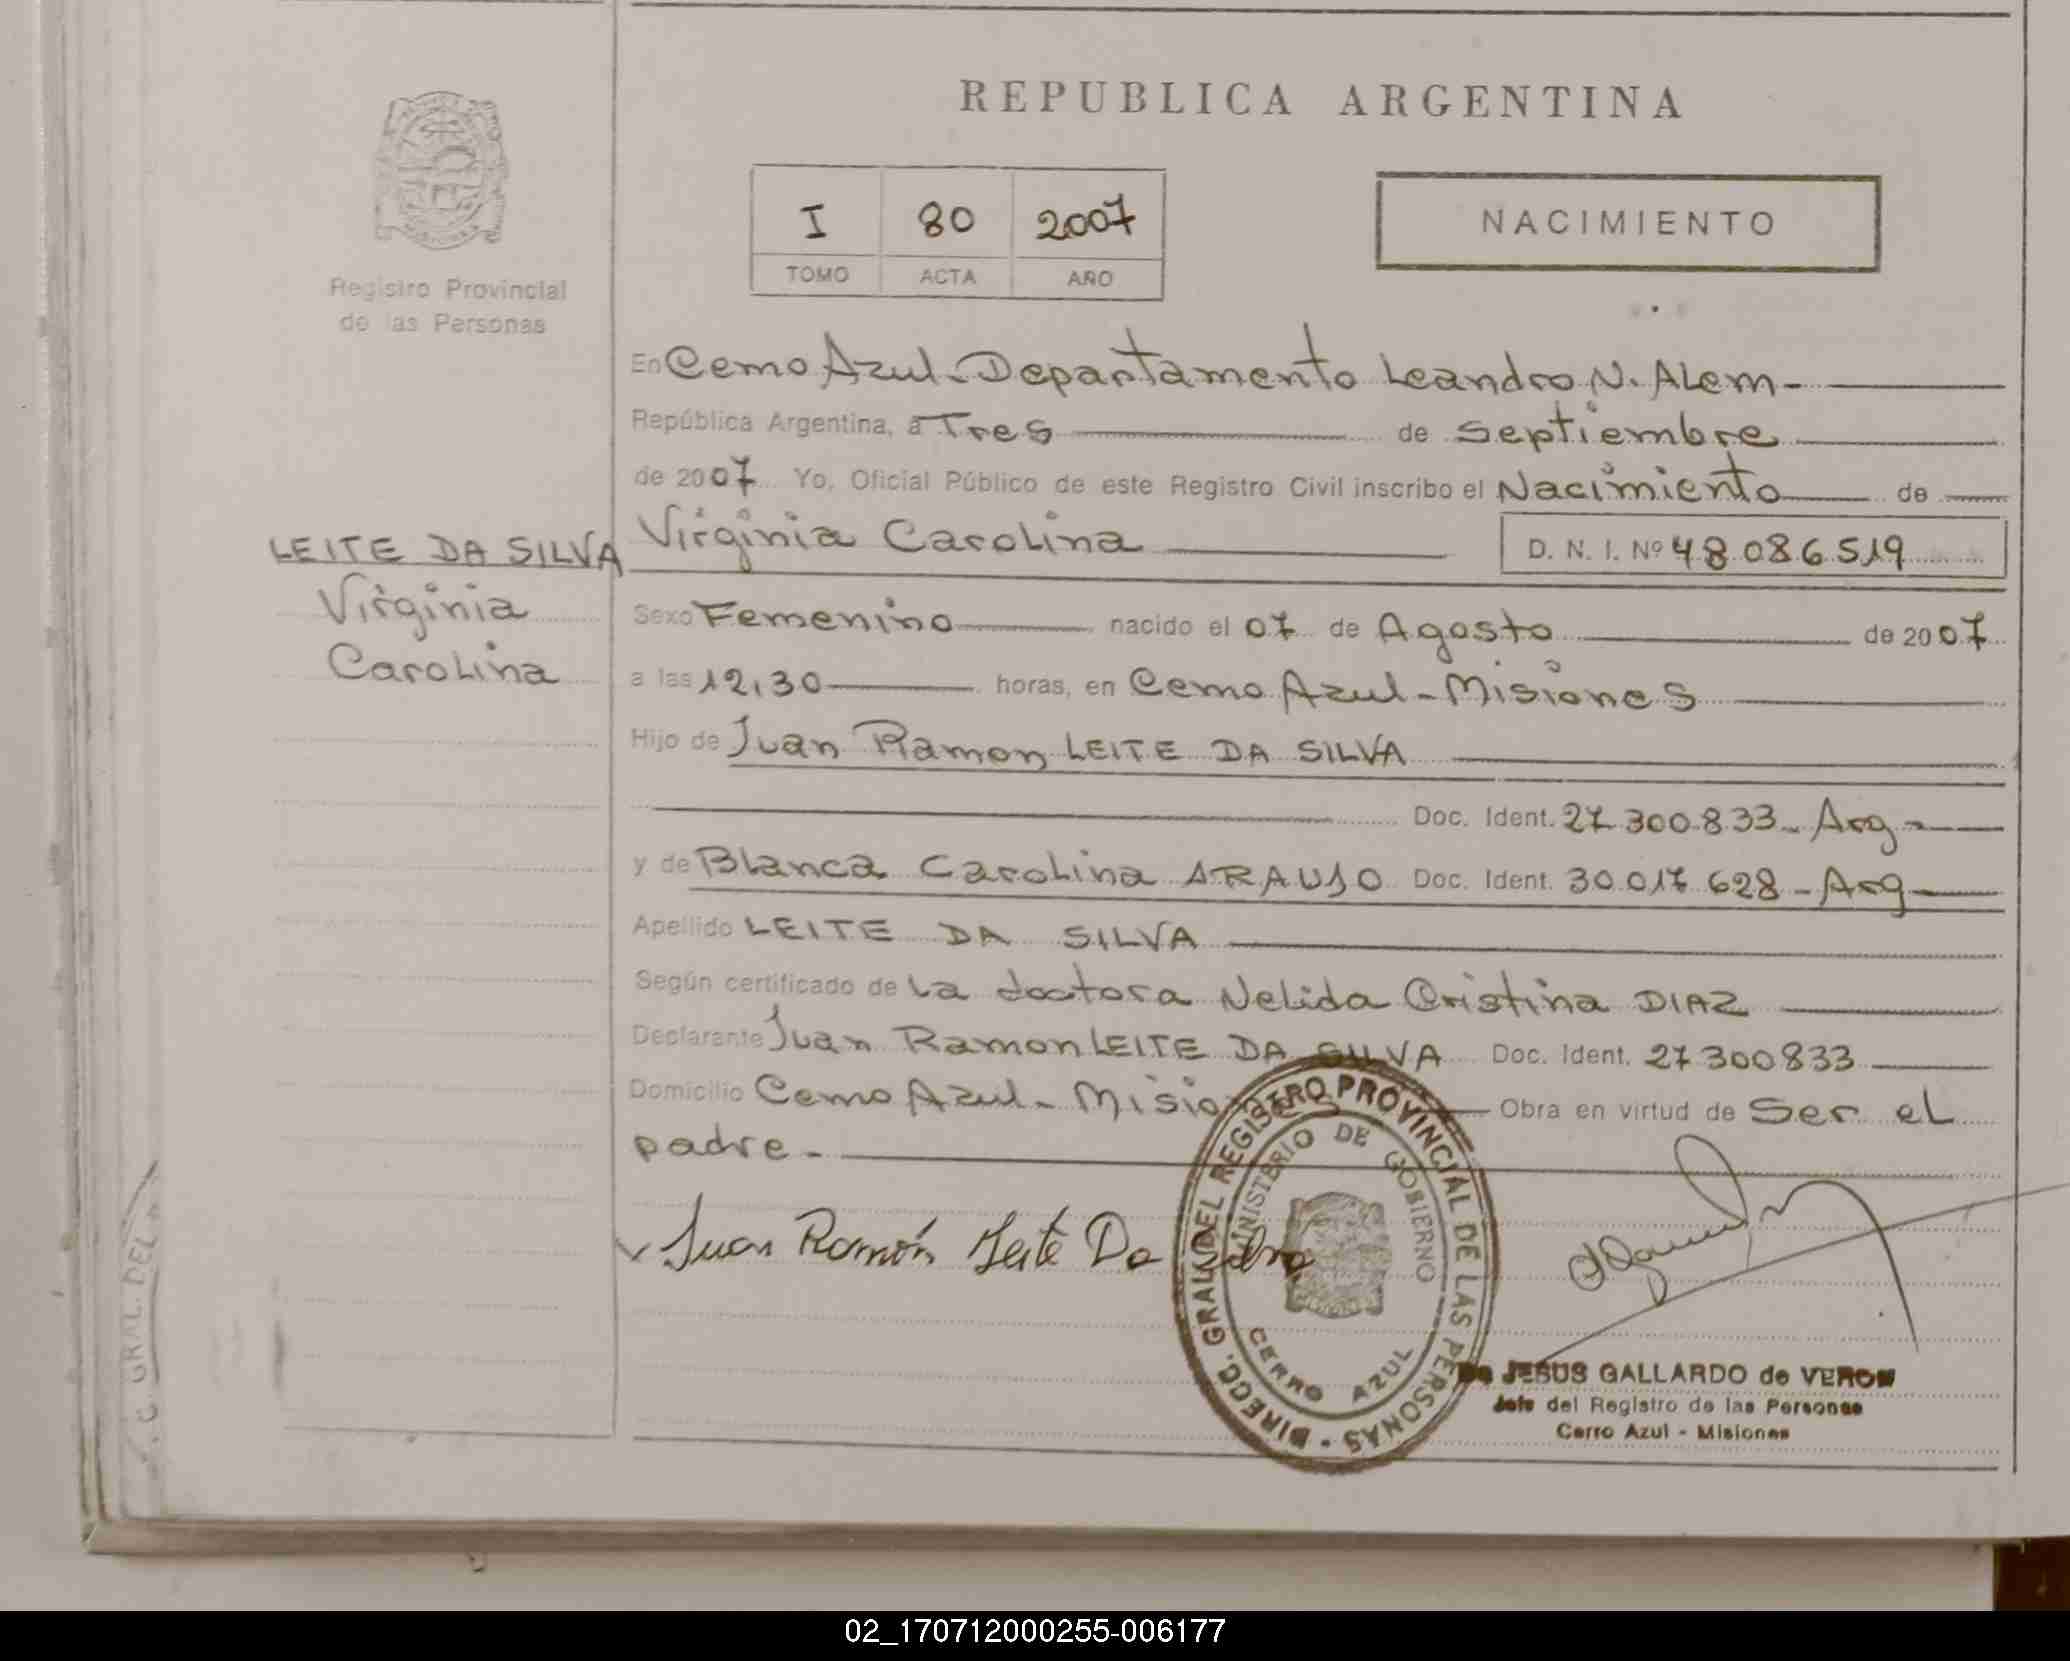 REPUBLICA ARGENTINA
I 80 2007
TOMO ACTA AÑO
NACIMIENTO
Registro Provincial
de las Personas
En Cerro Azul - Departamento Leandro N. Alem -
República Argentina, a Tres de Septiembre
de 2007 Yo, Oficial Público de este Registro Civil inscribo el Nacimiento de
Virginia Carolina D. N. I. Nº 48.086.519
LEITE DA SILVA
Virginia
Carolina
Sexo Femenino nacido el 07 de Agosto de 2007
a las 12,30 horas, en Cerro Azul - Misiones
Hijo de Juan Ramon LEITE DA SILVA
Doc. Ident. 27.300.833 - Arg -
y de Blanca Carolina ARAUJO Doc. Ident. 30.017.628 - Arg -
Apellido LEITE DA SILVA
Según certificado de La doctora Nelida Cristina DIAZ
Declarante Juan Ramon LEITE DA SILVA Doc. Ident. 27.300.833
Domicilio Cerro Azul - Misiones Obra en virtud de Ser el
padre -
Juan Ramón Leite Da Silva
DIRECC. GRAL. DEL REGISTRO PROVINCIAL DE LAS PERSONAS
MINISTERIO DE GOBIERNO
CERRO AZUL
JESUS GALLARDO de VERON
Jefe del Registro de las Personas
Cerro Azul - Misiones
GRAL. DEL
02_170712000255-006177